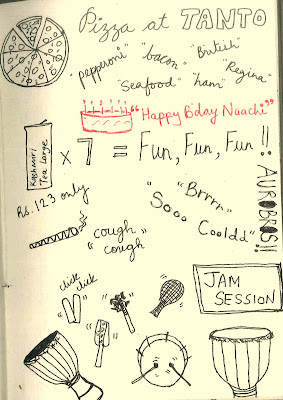 Pizza at TANTO
"pepperoni" "bacon" "British"
"Seafood" "ham" "Regina"
"Happy B'day Naachi"
Kashmiri
Tea Large
x 7 = Fun, Fun, Fun !!
Rs. 123 only
"Brrrr"
"Sooo Cooldd"
AUROBROS!!
"cough"
"cough"
click
click
JAM
SESSION